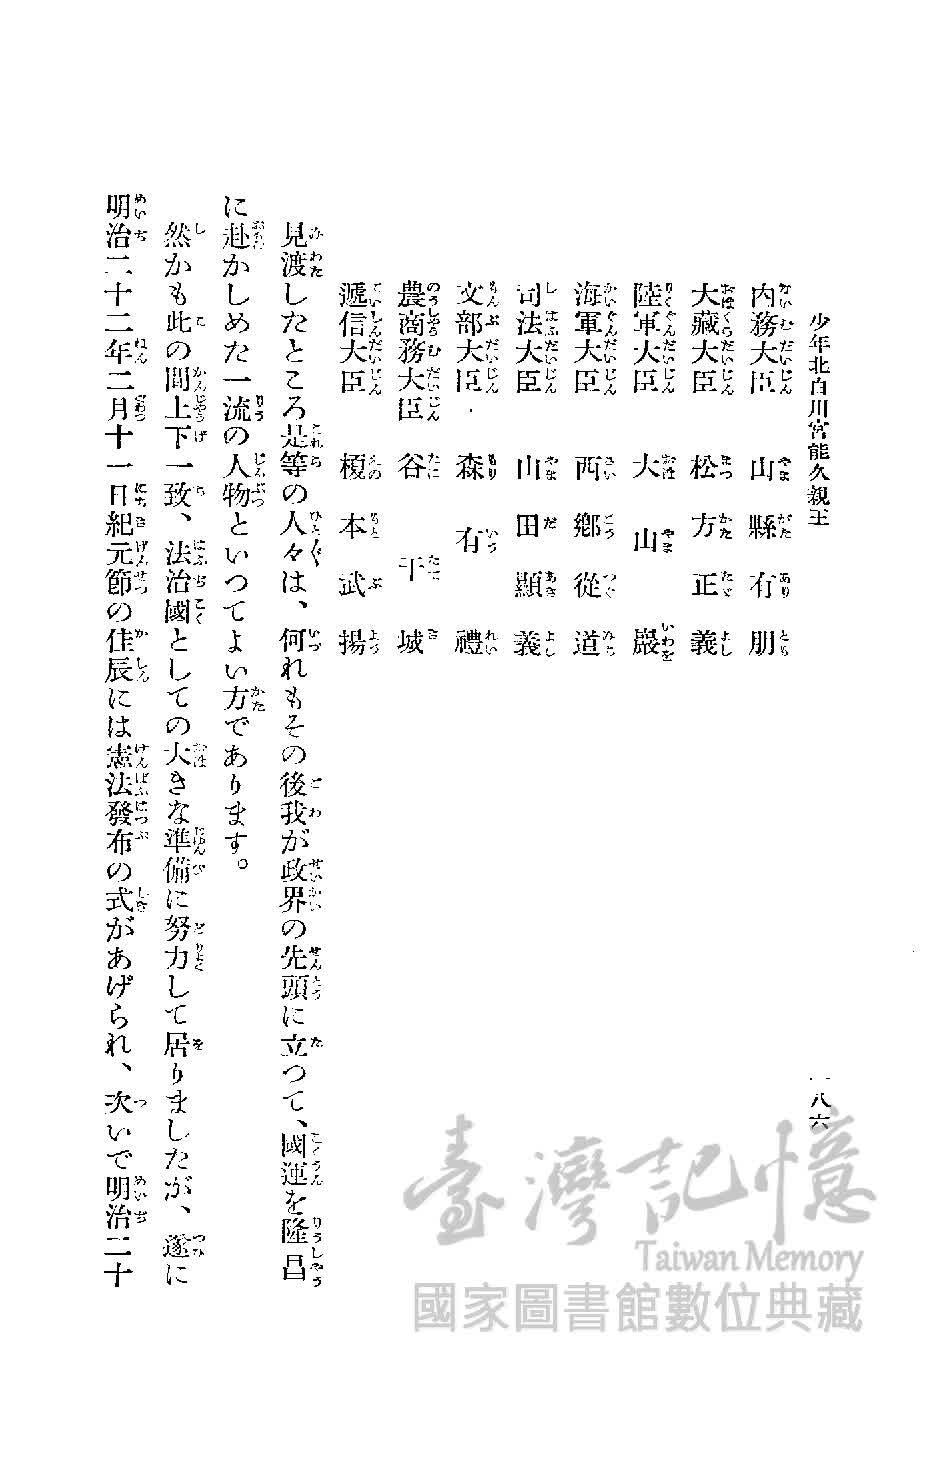 少年北白川宮能久親王
一八六
内務大臣 山縣有朋
大藏大臣 松方正義
陸軍大臣 大山巖
海軍大臣 西鄕從道
司法大臣 山田顯義
文部大臣 森有禮
農商務大臣 谷干城
遞信大臣 榎本武揚
見渡したところ是等の人々は、何れもその後我が政界の先頭に立つて、國運を隆昌
に赴かしめた一流の人物といつてよい方であります。
然かも此の間上下一致、法治國としての大きな準備に努力して居りましたが、遂に
明治二十二年二月十一日紀元節の佳辰には憲法發布の式があげられ、次いで明治二十
臺灣記憶
Taiwan Memory
國家圖書館數位典藏